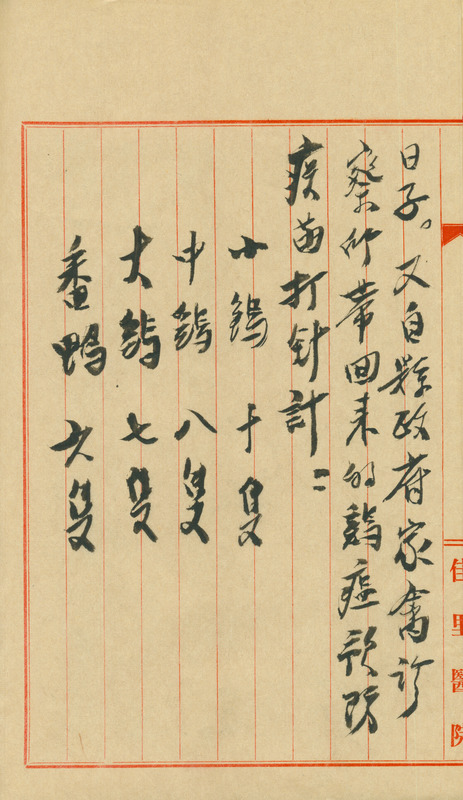 日子。又自縣政府家禽診
察所帶回来的鷄瘟預防
疫苗打針計:
小鷄 十隻
中鷄 八隻
大鷄 七隻
番鴨 六隻
佳里醫院